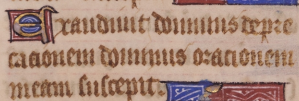 Exaudivit dominus depre
cationem dominus orationem
meam suscepit.